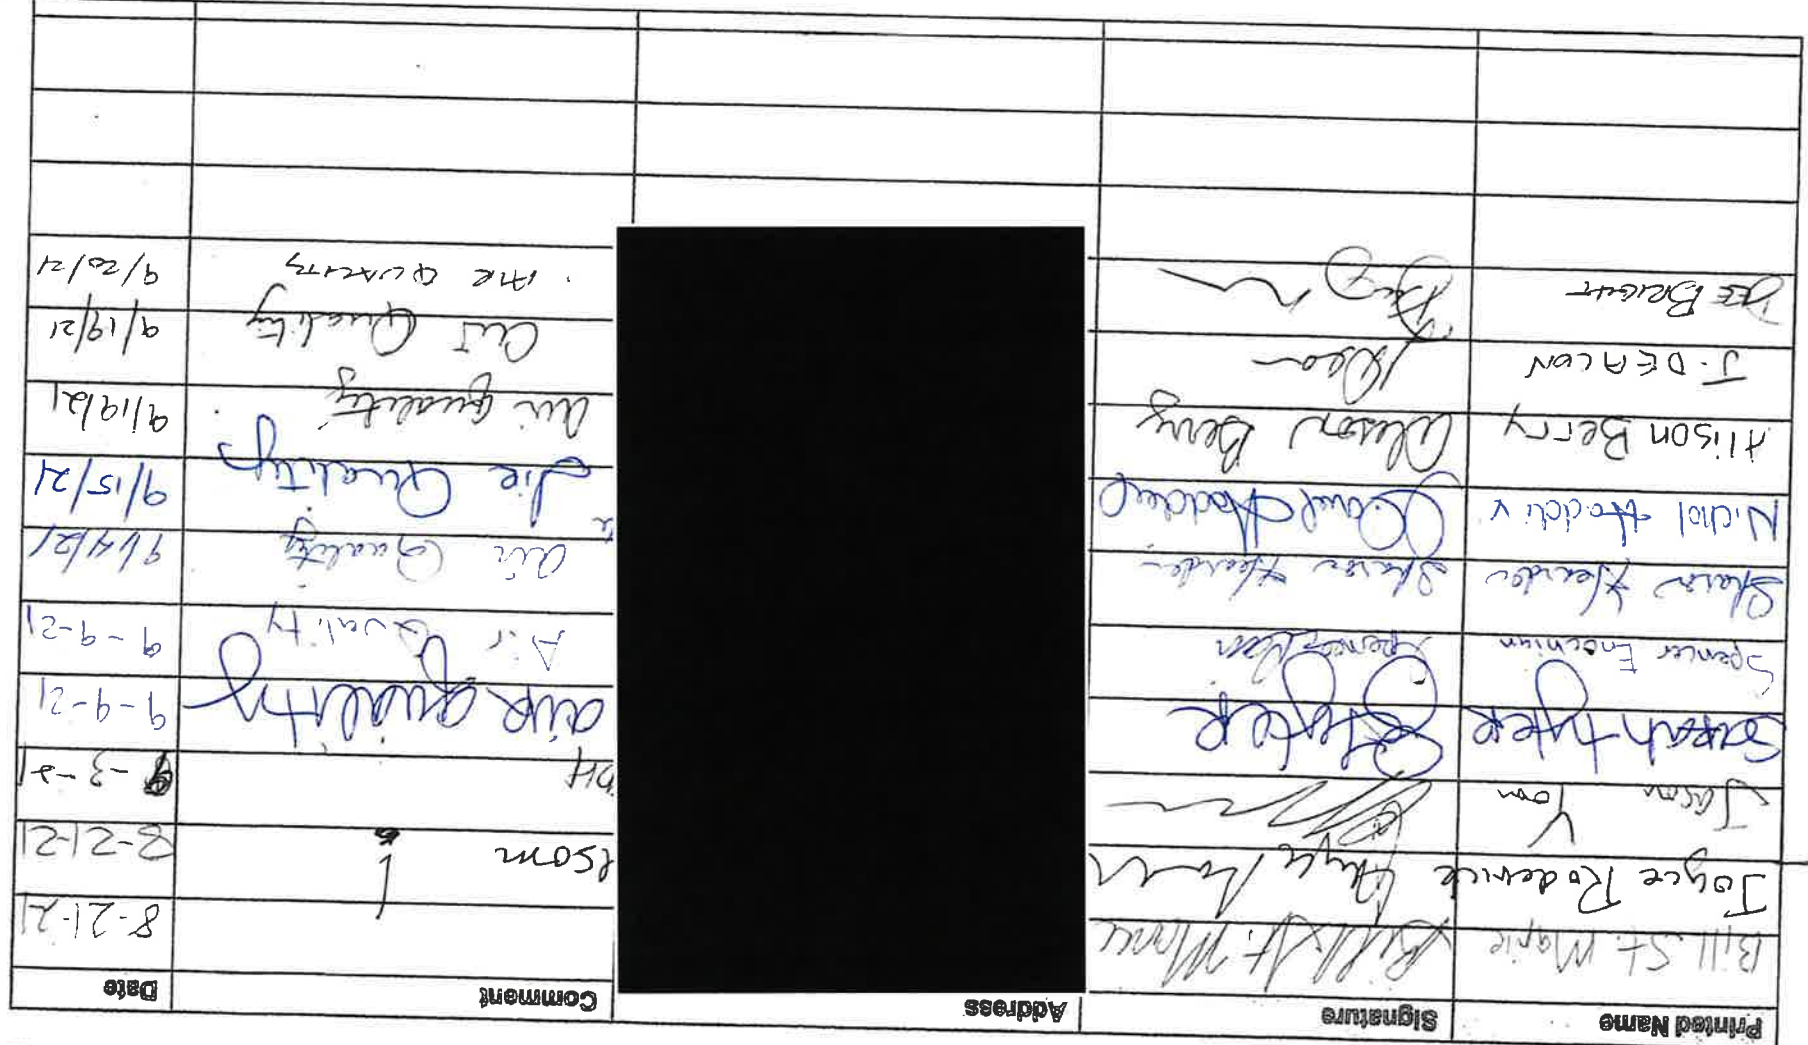 Printed Name Signature Address Comment Date
Bill St. Marie Bill St. Marie 8-21-21
Joyce Roderick Joyce esom 8-21-21
Jason Yoon 9-3-21
Sarah tyler air quality 9-9-21
Spencer Air Quality 9-9-21
Sharon Hearden Sharon Hearden Air Quality 9/14/21
Nichol Air Quality 9/15/21
Alison Berry Alison Berry air quality 9/19/21
J. DEACON Air Quality 9/19/21
BRIGHT AIR QUALITY 9/20/21